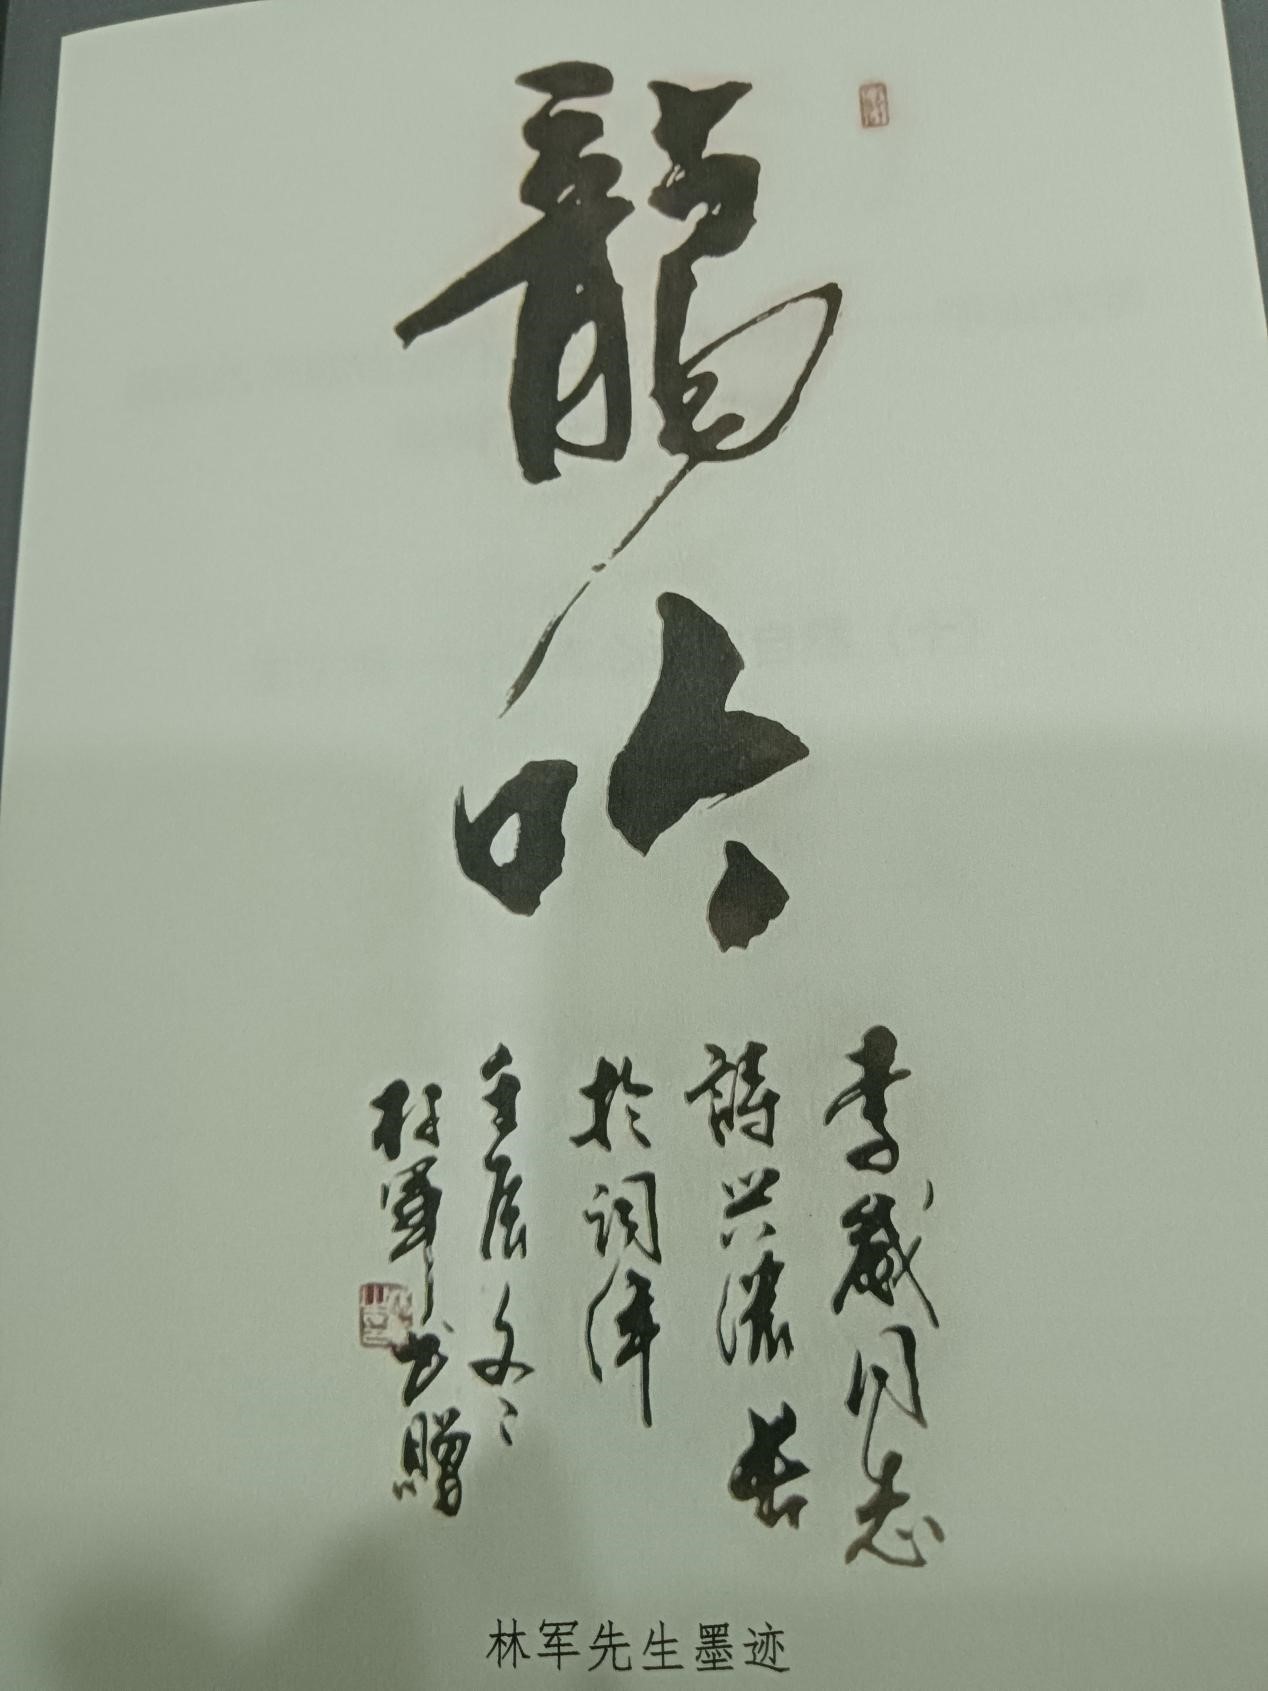 龍吟
李箴同志
詩兴濃長
於词律
壬辰冬
林軍书贈
林军先生墨迹